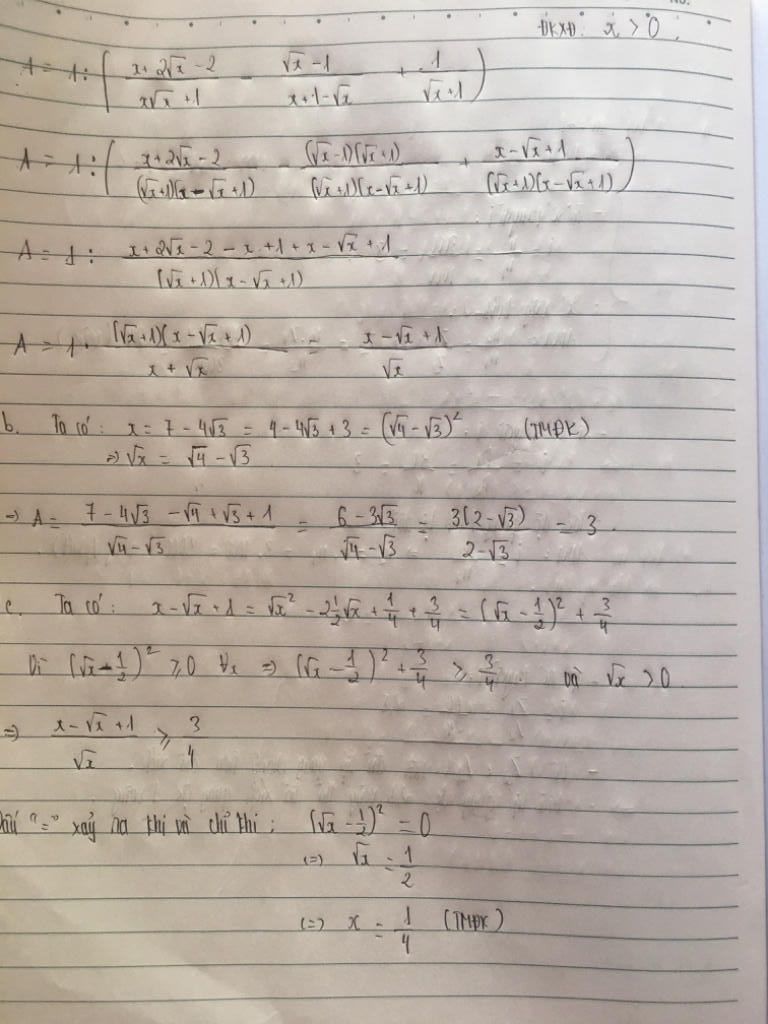 No.
ĐKXĐ: x > 0.
A = 1 : ( (x + 2√x - 2)/(x√x + 1) - (√x - 1)/(x + 1 - √x) + 1/(√x + 1) )
A = 1 : ( (x + 2√x - 2)/((√x + 1)(x - √x + 1)) - ((√x - 1)(√x + 1))/((√x + 1)(x - √x + 1)) + (x - √x + 1)/((√x + 1)(x - √x + 1)) )
A = 1 : (x + 2√x - 2 - x + 1 + x - √x + 1)/((√x + 1)(x - √x + 1))
A = 1 · ((√x + 1)(x - √x + 1))/(x + √x) = (x - √x + 1)/√x
b. Ta có: x = 7 - 4√3 = 4 - 4√3 + 3 = (√4 - √3)² (TMĐK)
⇒ √x = √4 - √3
⇒ A = (7 - 4√3 - √4 + √3 + 1)/(√4 - √3) = (6 - 3√3)/(√4 - √3) = (3(2 - √3))/(2 - √3) = 3.
c. Ta có: x - √x + 1 = √x² - 2 1/2 √x + 1/4 + 3/4 = (√x - 1/2)² + 3/4
Vì (√x - 1/2)² ≥ 0 ∀x ⇒ (√x - 1/2)² + 3/4 ≥ 3/4 và √x > 0
⇒ (x - √x + 1)/√x ≥ 3/4
Dấu "=" xảy ra khi và chỉ khi: (√x - 1/2)² = 0
(=) √x = 1/2
(=) x = 1/4 (TMĐK)